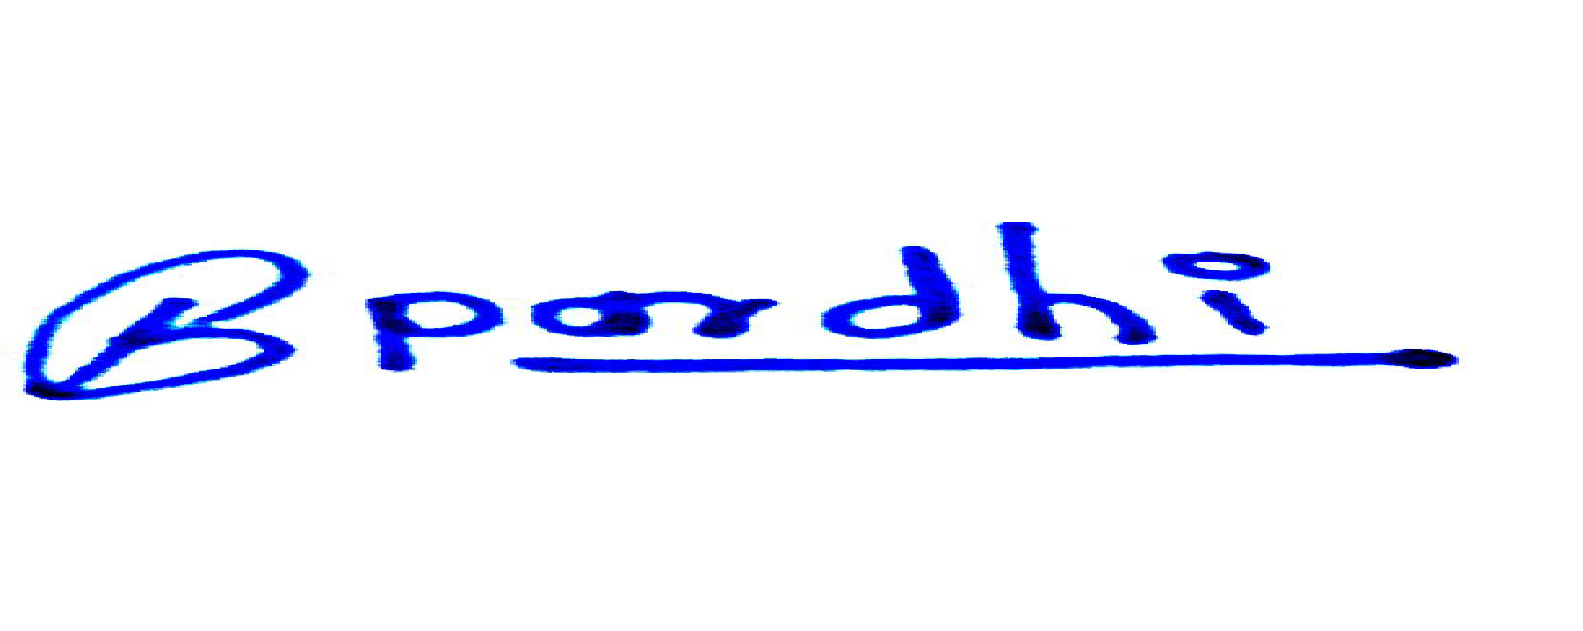 B pardhi